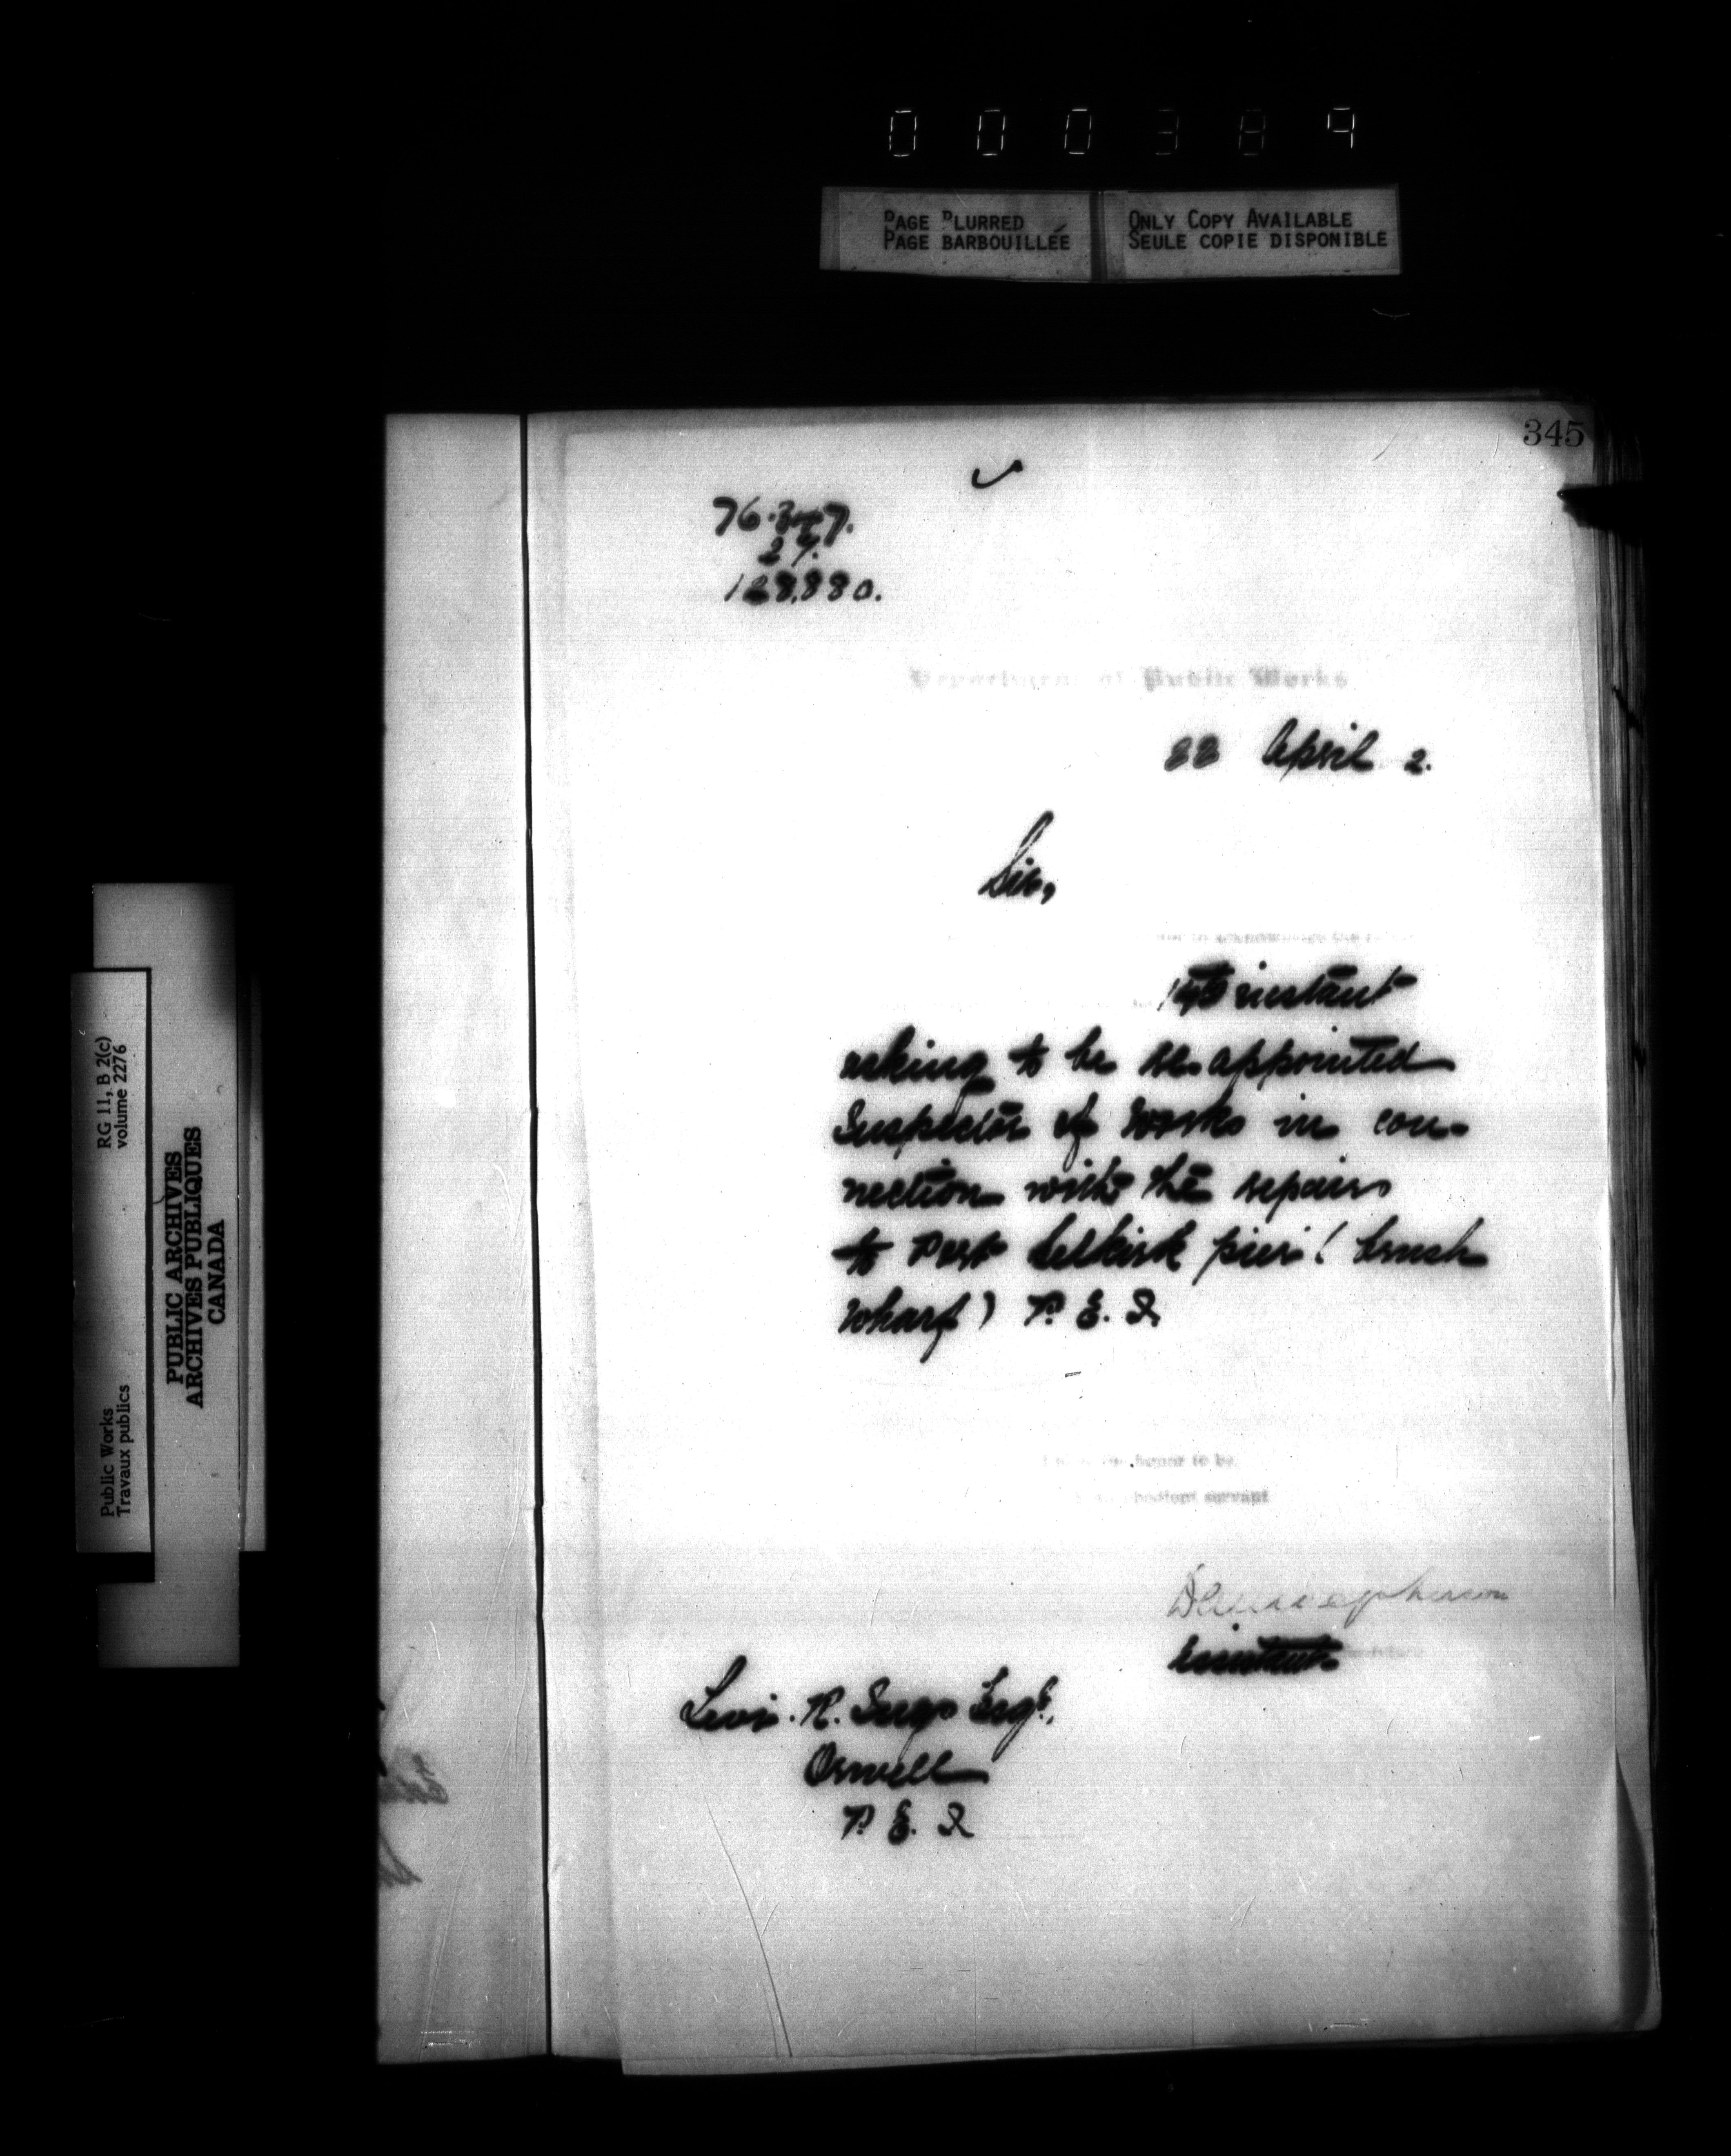 000389
PAGE BLURRED
PAGE BARBOUILLÉE
ONLY COPY AVAILABLE
SEULE COPIE DISPONIBLE
345
27.
128,880.
Department of Public Works
22 April 2.
Sir,
to acknowledge the
14th instant
asking to be re-appointed
Inspector of Works in con-
nection with the repairs
to Port Selkirk pier (brush
wharf) P. E. I.
the honor to be
obedient servant
Assistant
Levi R. Ings Esqr.,
Orwell
P. E. I.
RG 11, B 2(c)
volume 2276
Public Works
Travaux publics
PUBLIC ARCHIVES
ARCHIVES PUBLIQUES
CANADA